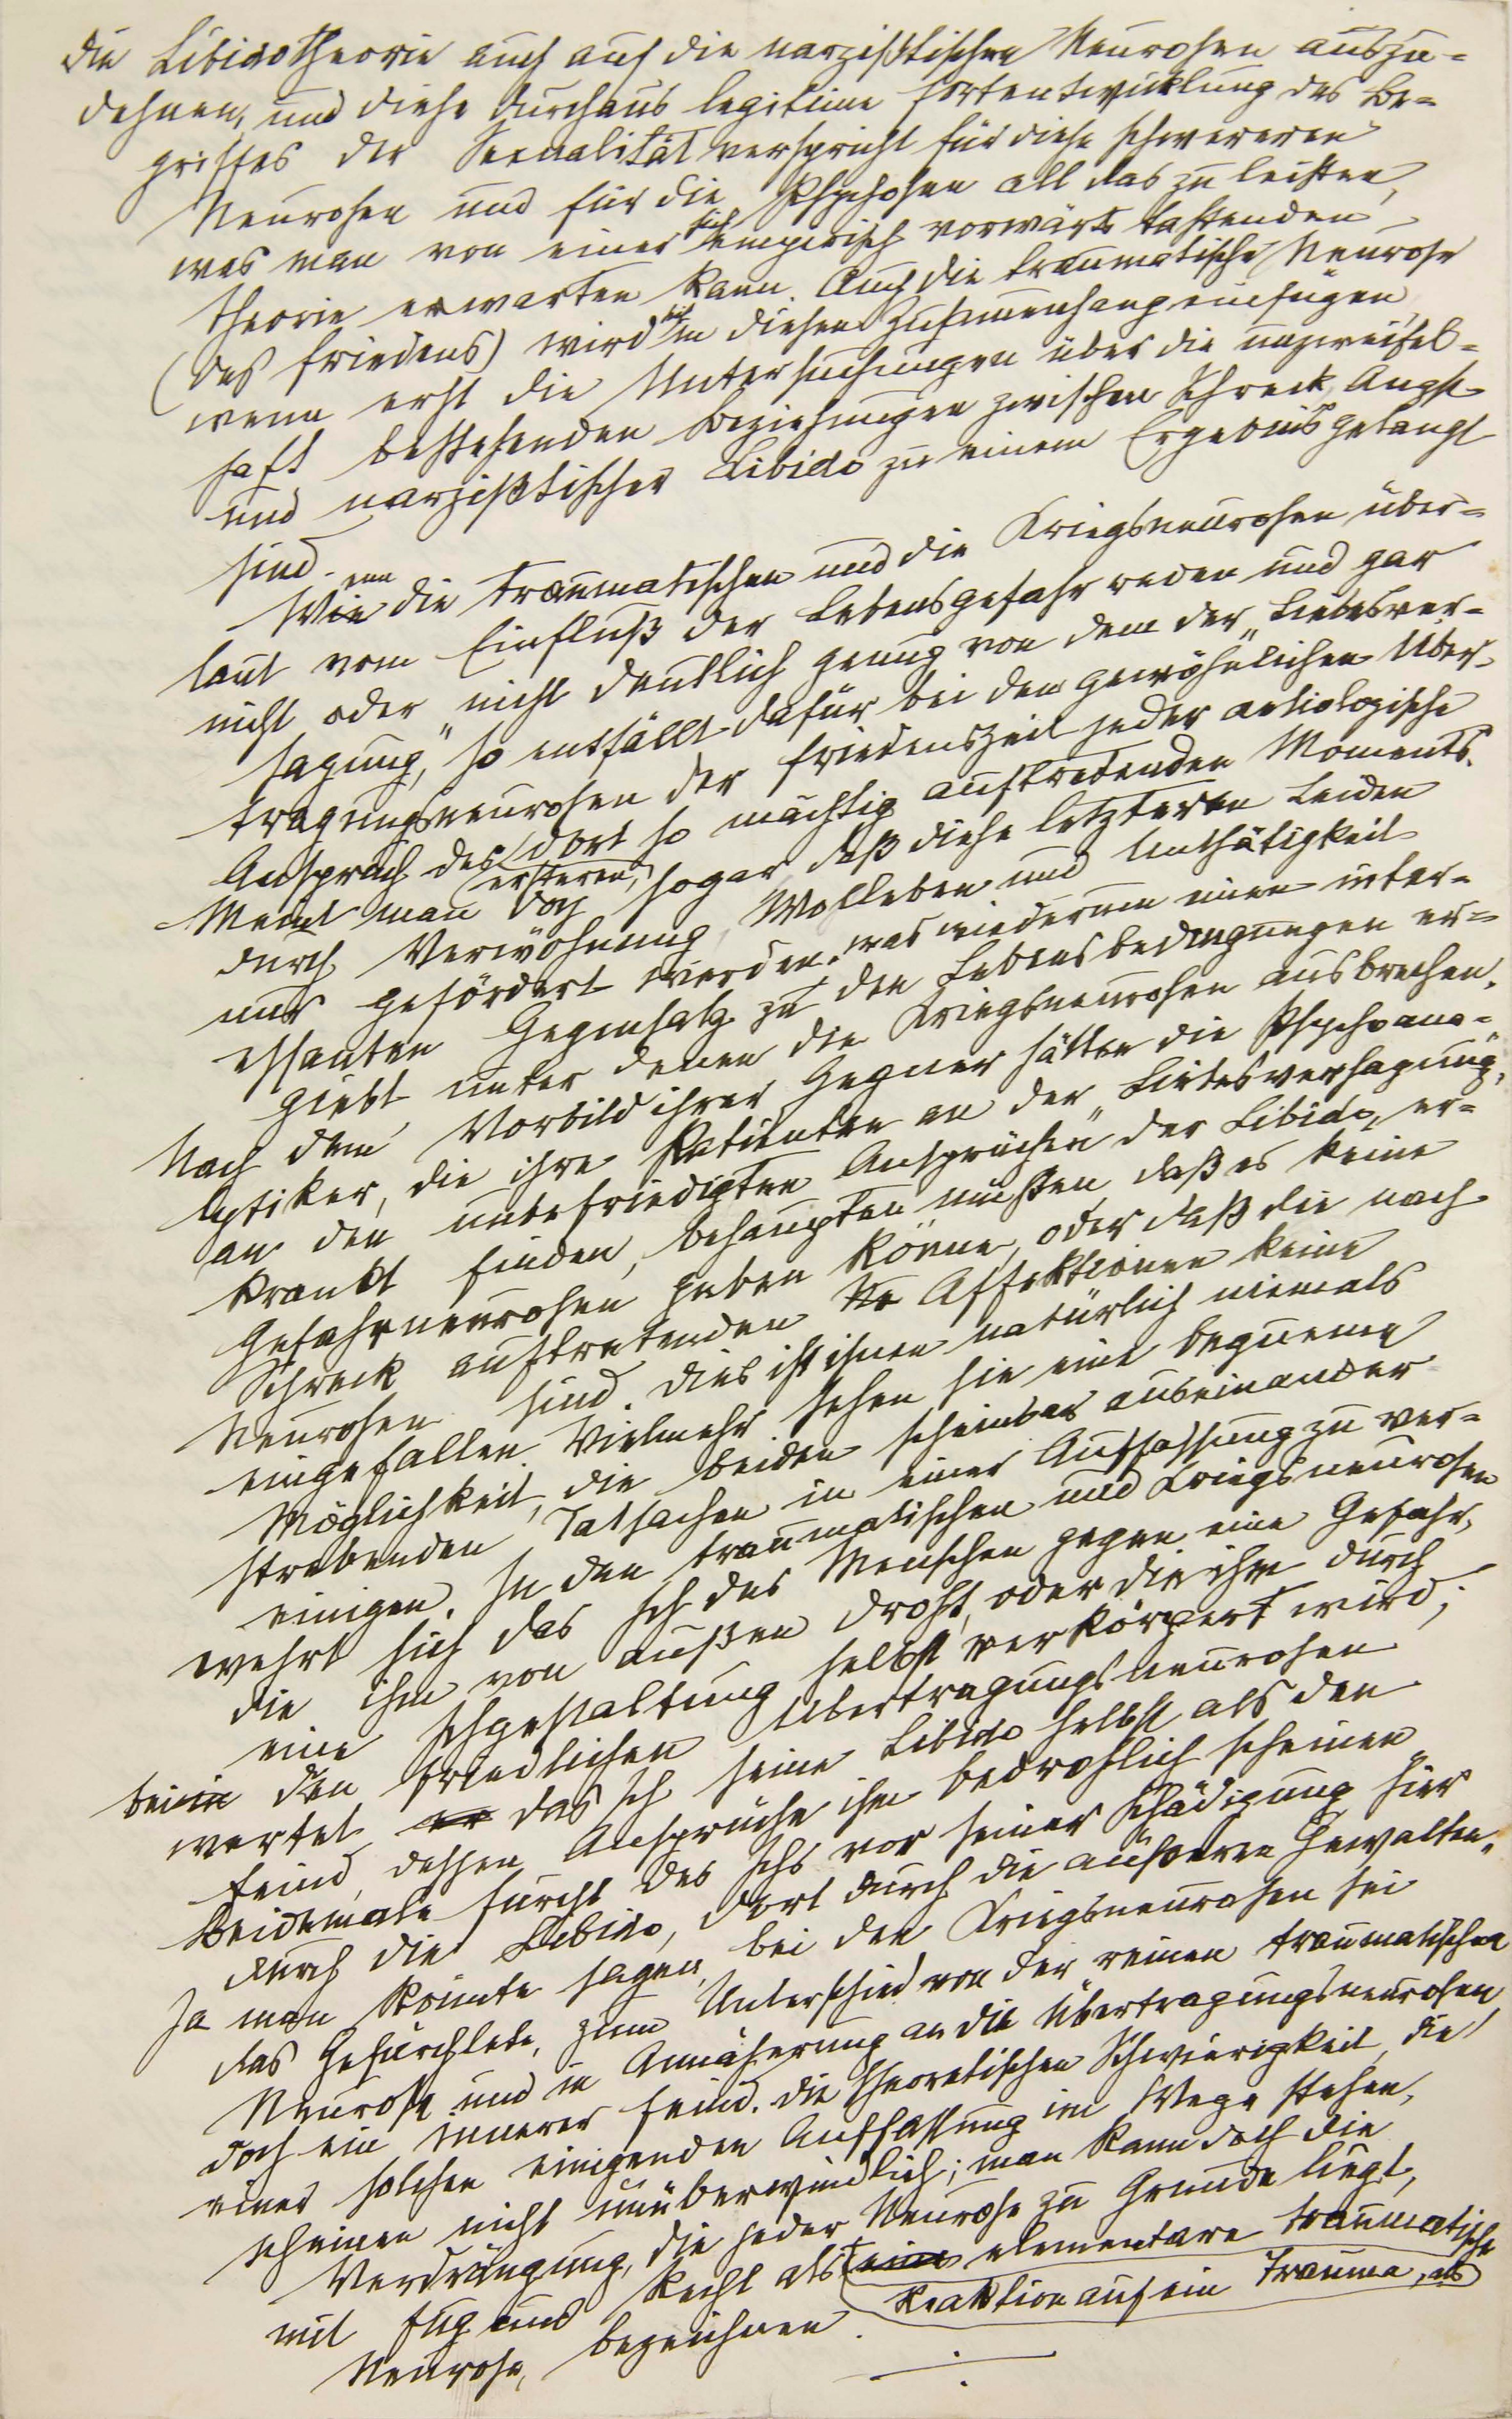 die Libidotheorie auch auf die narzißtischen Neurosen auszu=
dehnen, und diese durchaus legitime Fortentwicklung des Be=
griffes der Sexualität verspricht für diese schwereren
Neurosen und für die Psychosen all das zu leisten,
was man von einer sich empirisch vorwärts tastenden
Theorie erwarten kann. Auch die traumatische Neurose
(des Friedens) wird sich in diesen Zusammenhang einfügen,
wenn erst die Untersuchungen über die unzweifel=
haft bestehenden Beziehungen zwischen Schreck, Angst
und narzißtischer Libido zu einem Ergebnis gelangt
sind.
Wie nun die traumatischen und die Kriegsneurosen über=
laut vom Einfluß der Lebensgefahr reden und gar
nicht oder nicht deutlich genug von dem der „Liebesver=
sagung", so entfällt dafür bei den gewöhnlichen Über=
tragungsneurosen der Friedenszeit jeder aetiologische
Anspruch des dort so mächtig auftretenden Moments.
Meint man doch ersteren, sogar daß diese letzteren Leiden
durch Verwöhnung, Wolleben und Unthätigkeit
nur gefördert werden, was wiederum einen inter=
essanten Gegensatz zu den Lebensbedingungen er=
giebt unter denen die Kriegsneurosen ausbrechen.
Nach dem Vorbild ihrer Gegner hätten die Psychoana=
lytiker, die ihre Patienten an der „Liebesversagung",
an den unbefriedigten Ansprüchen der Libido, er=
krankt finden, behaupten müssen, daß es keine
Gefahrneurosen geben könne, oder daß die nach
Schreck auftretenden Affektionen keine
Neurosen sind. Dies ist ihnen natürlich niemals
eingefallen. Vielmehr sehen sie eine bequeme
Möglichkeit, die beiden scheinbar auseinander
strebenden Tatsachen in einer Auffassung zu ver=
einigen. In den traumatischen und Kriegsneurosen
wehrt sich das Ich des Menschen gegen eine Gefahr,
die ihm von außen droht, oder die ihm durch
eine Ichgestaltung selbst verkörpert wird;
bei den friedlichen Übertragungsneurosen
wertet das Ich seine Libido selbst als den
Feind, dessen Ansprüche ihm bedrohlich scheinen.
Beidemale Furcht des Ichs vor seiner Schädigung hier
durch die Libido, dort durch die äußeren Gewalten.
Ja man könnte sagen, bei den Kriegsneurosen sei
das Gefürchtete, zum Unterschied von der reinen traumatischen
Neurose und in Annäherung an die Übertragungsneurosen,
doch ein innerer Feind. Die theoretischen Schwierigkeit, die
einer solchen einigenden Auffassung im Wege stehen,
scheinen nicht unüberwindlich; man kann doch die
Verdrängung, die jeder Neurose zu Grunde liegt,
mit Fug und Recht als eine elementare traumatische
Reaktion auf ein Trauma, als
Neurose, bezeichnen.